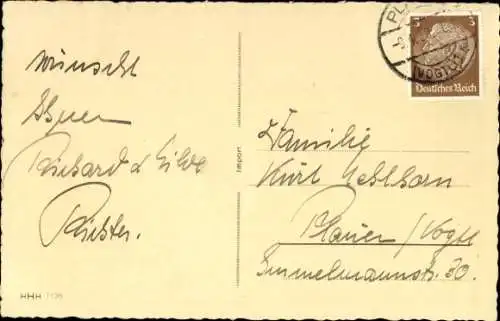 wünscht
Ihnen
Richard u Hilde
Richter.
Import
Familie
Kurt Oehlhorn
Plauen/Vogtl
Immelmannstr. 30.
3 3
Deutsches Reich
(VOGTL)
HHH